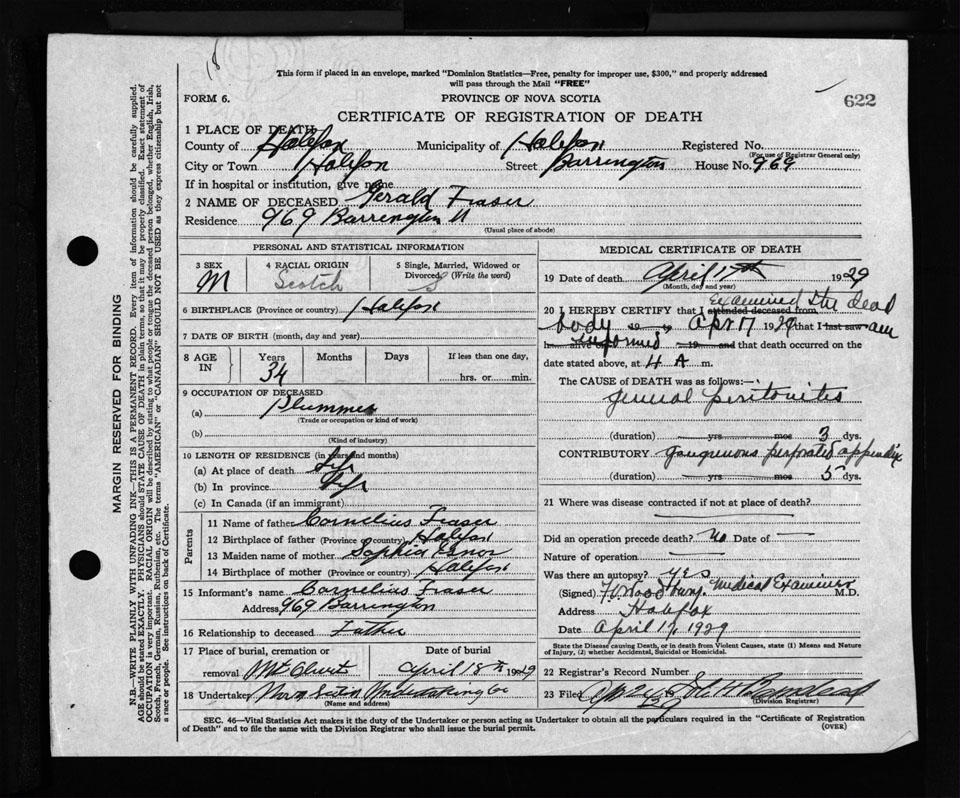 18
This form if placed in an envelope, marked "Dominion Statistics—Free, penalty for improper use, $300," and properly addressed
will pass through the Mail "FREE"
FORM 6.
PROVINCE OF NOVA SCOTIA
622
CERTIFICATE OF REGISTRATION OF DEATH
1 PLACE OF DEATH
County of Halifax Municipality of Halifax Registered No.
(For use of Registrar General only)
City or Town Halifax Street Barrington House No. 969
If in hospital or institution, give name
2 NAME OF DECEASED Gerald Fraser
Residence 969 Barrington St
(Usual place of abode)
PERSONAL AND STATISTICAL INFORMATION
3 SEX M
4 RACIAL ORIGIN Scotch
5 Single, Married, Widowed or Divorced (Write the word) S
6 BIRTHPLACE (Province or country) Halifax
7 DATE OF BIRTH (month, day and year)
8 AGE IN Years Months Days If less than one day,
34 hrs. or min.
9 OCCUPATION OF DECEASED
(a) Plummer
(Trade or occupation or kind of work)
(b)
(Kind of industry)
10 LENGTH OF RESIDENCE (in years and months)
(a) At place of death Life
(b) In province Life
(c) In Canada (if an immigrant)
Parents
11 Name of father Cornelius Fraser
12 Birthplace of father (Province or country) Halifax
13 Maiden name of mother Sophia
14 Birthplace of mother (Province or country) Halifax
15 Informant's name Cornelius Fraser
Address 969 Barrington
16 Relationship to deceased Father
17 Place of burial, cremation or removal Mt Olivet
Date of burial April 18th 1929
18 Undertaker Nova Scotia Undertaking Co
(Name and address)
MEDICAL CERTIFICATE OF DEATH
19 Date of death April 17th 1929
(Month, day and year)
examined the dead
20 I HEREBY CERTIFY that I attended deceased from,
body 19 to Apr 17 1929 that I last saw am
h alive on informed 19 and that death occurred on the
date stated above, at 4 A m.
The CAUSE OF DEATH was as follows:—
general peritonites
(duration) yrs mos 3 dys.
CONTRIBUTORY gangrenous perforated appendix
(duration) yrs mos 5 dys.
21 Where was disease contracted if not at place of death?
Did an operation precede death? No Date of —
Nature of operation —
Was there an autopsy? yes
(Signed) Medical Examiner M.D.
Address Halifax
Date April 17, 1929
State the Disease Causing Death, or in death from Violent Causes, state (1) Means and Nature of Injury, (2) whether Accidental, Suicidal or Homicidal.
22 Registrar's Record Number
23 Filed
(Division Registrar)
SEC. 46—Vital Statistics Act makes it the duty of the Undertaker or person acting as Undertaker to obtain all the particulars required in the "Certificate of Registration
of Death" and to file the same with the Division Registrar who shall issue the burial permit.
(OVER)
MARGIN RESERVED FOR BINDING
N.B.—WRITE PLAINLY WITH UNFADING INK—THIS IS A PERMANENT RECORD. Every item of information should be carefully supplied.
AGE should be stated EXACTLY. PHYSICIANS should STATE CAUSE OF DEATH in plain terms, so that it may be properly classified. Exact statement of
OCCUPATION is very important. RACIAL ORIGIN will be described by stating to what people or tongue the deceased person belonged, whether English, Irish,
Scotch, French, German, Russian, Ruthenian, etc. The terms "AMERICAN" or "CANADIAN" SHOULD NOT BE USED as they express citizenship but not
a race or people. See instructions on back of Certificate.